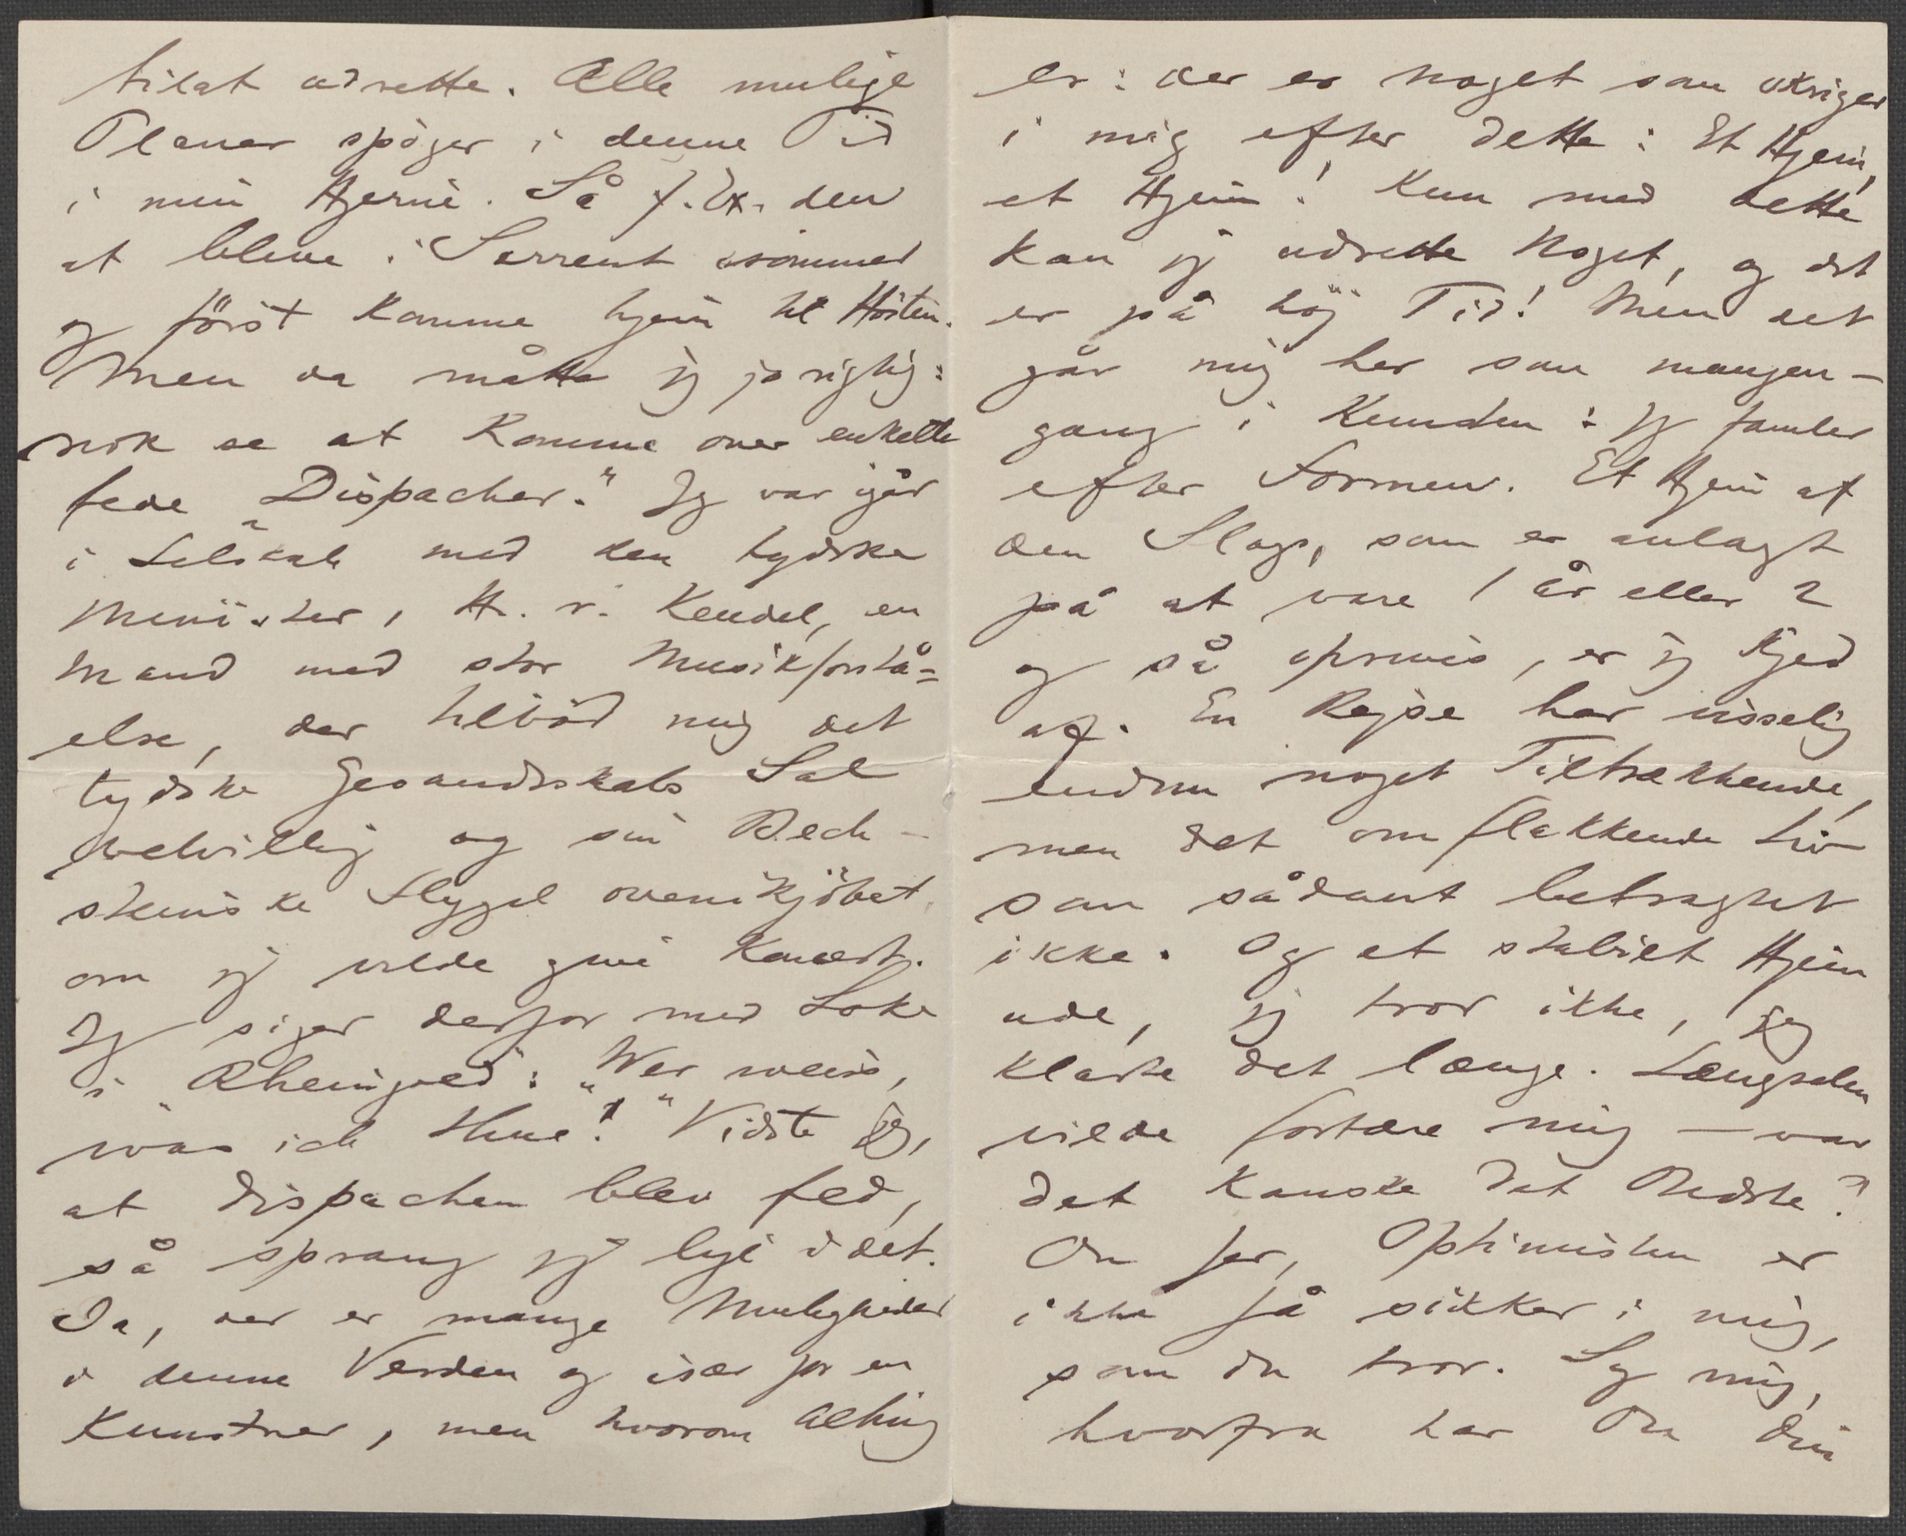 tilat udrette. Alle mulige
Planer spøger i denne Tid
i min Hjerne. Så f. Ex. den
at blive i Sorrent isommer
og först komme hjem til Hösten.
Men da måtte jeg jo rigtig-
nok se at komme over enkelte
fede „Dispacher." Jeg var igår
i Selskab med den tydske
Minister, H. v. Keudel, en
Mand med stor Musikforstå=
else, der tilböd mig det
tydske Gesandtskabs Sal
velvillig og sin Bech-
steinske Flygel ovenikjöbet,
om jeg vilde give Koncert.
Jeg siger derfor med Loke
i „Rheingold": „Wer weiss,
was ich thue!" Vidste jeg,
at Dispachen blev fed,
så sprang jeg lige i det.
Ja, der er mange Muligheder
i denne Verden og især for en
Kunstner, men hvorom Alting
er: der er noget som skriger
i mig efter dette: Et Hjem,
et Hjem! Kun med dette
kan jeg udrette Noget, og det
er på höj Tid! Men det
går mig her som mangen-
gang i Kunsten: jeg famler
efter Formen. Et Hjem af
den Slags, som er anlagt
på at vare 1 år eller 2
og så opreves, er jeg kjed
af. En Rejse har visselig
endnu noget Tiltrækkende,
men det omflakkende Liv
som sådant betragtet
ikke. Og et stabilt Hjem
ude, jeg tror ikke, jeg
klarte det længe. Længselen
vilde fortære mig – var
det kanske det Bedste?
Du ser, Optimisten er
ikke så sikker i mig,
som du tror. Sig mig,
hvorfra har Du Din